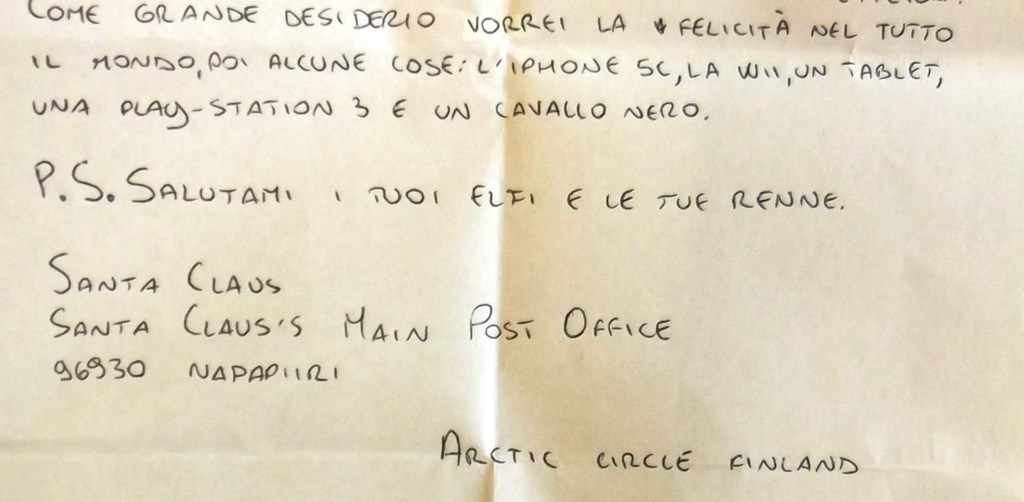 COME GRANDE DESIDERIO VORREI LA FELICITÀ NEL TUTTO
IL MONDO, POI ALCUNE COSE: L'IPHONE 5C, LA WII, UN TABLET,
UNA PLAY-STATION 3 E UN CAVALLO NERO.
P.S. SALUTAMI I TUOI ELFI E LE TUE RENNE.
SANTA CLAUS
SANTA CLAUS'S MAIN POST OFFICE
96930 NAPAPIIRI
ARCTIC CIRCLE FINLAND